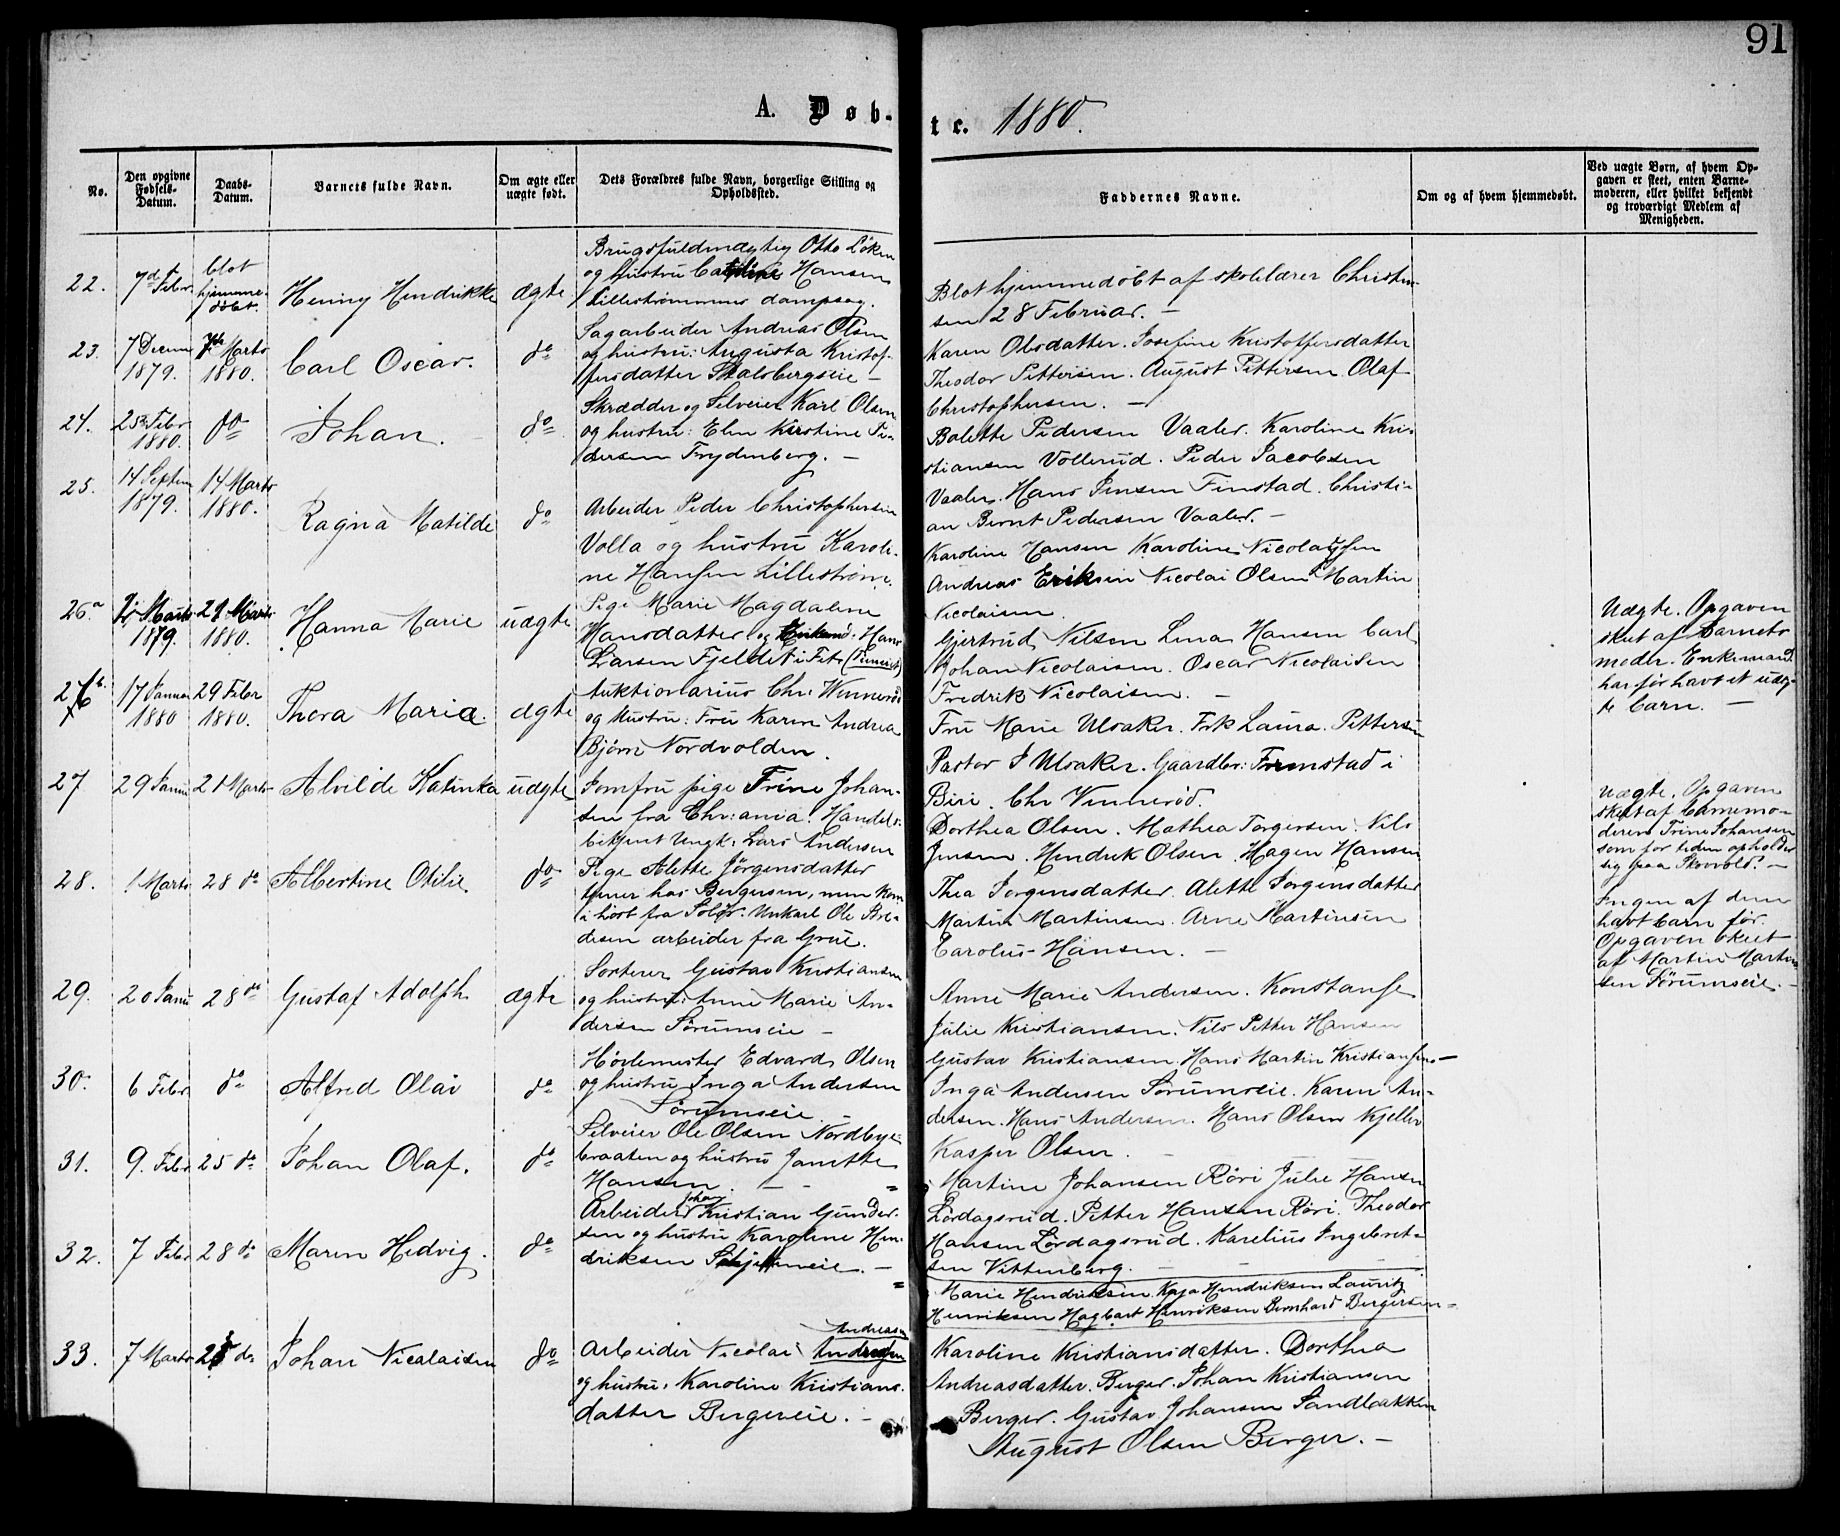 91
A. Døb-
te. 1880.
No.
Den opgivne Fødsels-Datum.
Daabs-Datum.
Barnets fulde Navn.
Om ægte eller uægte født.
Dets Forældres fulde Navn, borgerlige Stilling og Opholdssted.
Faddernes Navne.
Om og af hvem hjemmedøbt.
Ved uægte Børn, af hvem Opgaven er skeet, enten Barnemoderen, eller hvilket bekjendt og troværdigt Medlem af Menigheden.
22. 7de Febr blot hjemmedøbt. Henny Hendrikke ægte
Brugsfuldmægtig Otto Løken
og hustru Hansen
Lillestrømmens dampsag.
Blot hjemmedøbt af skolelærer Christen-
sen 28 Februar. —
23. 7 Decem 1879. 7de Marts 1880. Carl Oscar. do
Sagarbeider Andreas Olsen
og hustru: Augusta Kristof-
fersdatter Skalsbergseie —
Karen Olsdatter. Josefine Kristoffersdatter
Theodor Pettersen. August Pettersen Olaf
Christophersen. —
24. 25de Febr 1880. do Johan. do
Skrædder og Selveier Karl Olsen
og hustru: Elen Kirstine Pe-
dersen Frydenberg. —
Bolette Pedersen Vaaler. Karoline Kri-
stiansen Vollerud. Peder Jacobsen
Vaaler. Hans Jensen Finstad. Christi-
an Bernt Pedersen Vaaler. —
25. 14 Septem 1879. 14 Marts 1880. Ragna Matilde do
Arbeider Peder Christophersen
Volla og hustru Karoli-
ne Hansen Lillestrøm.
Karoline Hansen Karoline Nicolaisen
Andreas Eriksen Nicolai Olsen Martin
Nicolaisen
26a Marts 1879. 21 Marts 1880. Hanna Marie uægte
Pige Marie Magdalene
Hansdatter og Enkemd. Hans
Larsen Fjeldet i Feto
Gjertrud Nilsen Lina Hansen Carl
Johan Nicolaisen. Oscar Nicolaisen
Fredrik Nicolaisen. —
Uægte. Opgaven
skeet af Barnets
moder. Enkemand
har før havt et uæg-
te barn. —
26b. 17 Januar 1880 29 Febr 1880. Thora Marie. ægte
Auktionarius Chr. Vennerød
og Hustru: Fru Karen Andrea
Bjørn Nordvolden.
Fru Marie Ulsaker. Frk Laura Pettersen
Pastor J Ulsaker. Gaardbr: Frenstad i
Biri. Chr Vennerød.
27 29 Janu 21 Marts Alvilde Katinka uægte
Jomfru pige Trine Johan-
sen fra Chr:ania. Handels-
betjent Ungk. Lars Andersen
Dorthea Olsen. Mathea Torgersen. Nils
Jensen. Hendrik Olsen. Hagen Hansen
Uægte. Opgaven
skeet af barnemo-
deren Trine Johansen
som for tiden opholder
sig paa Skovold. —
28. 1 Marts 28 do Albertine Otilie do
Pige Alette Jørgensdatter
tjener hos Bergersen, men kom
i høst fra Solør. Unkarl Ole Pe-
dersen arbeider fra Grue.
Thea Jorgensdatter. Alette Jorgensdatter
Martin Martinsen. Arne Martinsen
Carolus Hansen. —
Ingen af dem
havt barn før.
Opgaven skeet
af Martin Martin-
sen Sørumseie. —
29. 20 Janu 28 do Gustaf Adolph. ægte
Sorterer Gustav Kristiansen
og hustru: Anne Marie An-
dersen Sørumseie —
Anne Marie Andersen. Konstanse
Julie Kristiansen. Nils Petter Hansen
Gustav Kristiansen. Hans Martin Kristiansen —
30. 6 Febr do Alfred Olav do
Høvlemester Edvard Olsen
og hustru Inga Andersen
Sørumseie —
Inga Andersen Sørumseie. Karen An-
dersen. Hans Andersen. Hans Olsen Kjeller
Kasper Olsen.
31. 9. Febr 25 do Johan Olaf. do
Selveier Ole Olsen Nordbye-
braaten og hustru Janette
Hansen. —
Martine Johansen Røri Julie Hansen
Lørdagsrud. Petter Hansen Røri. Theodor
Hansen Lørdagsrud. Karelius Ingebret-
sen Vittenberg.
32. 7 Febr 28 do Maren Hedvig. do
Arbeider Johan Kristian Gunder-
sen og hustru Karoline Hen-
driksen Skjetteneie. —
Marie Hendriksen. Kaja Hendriksen Lauritz
Henriksen Hagbart Henriksen Bernhard Bergersen =
33. 7 Marts 25 do Johan Nicolaisen do
Arbeider Nicolai Andreasen
og hustru: Karoline Kristians-
datter Bergereie. —
Karoline Kristiansdatter. Dorthea
Andreasdatter. Berger. Johan Kristiansen
Berger. Gustav Johansen Sandbakken
August Olsen Berger. —